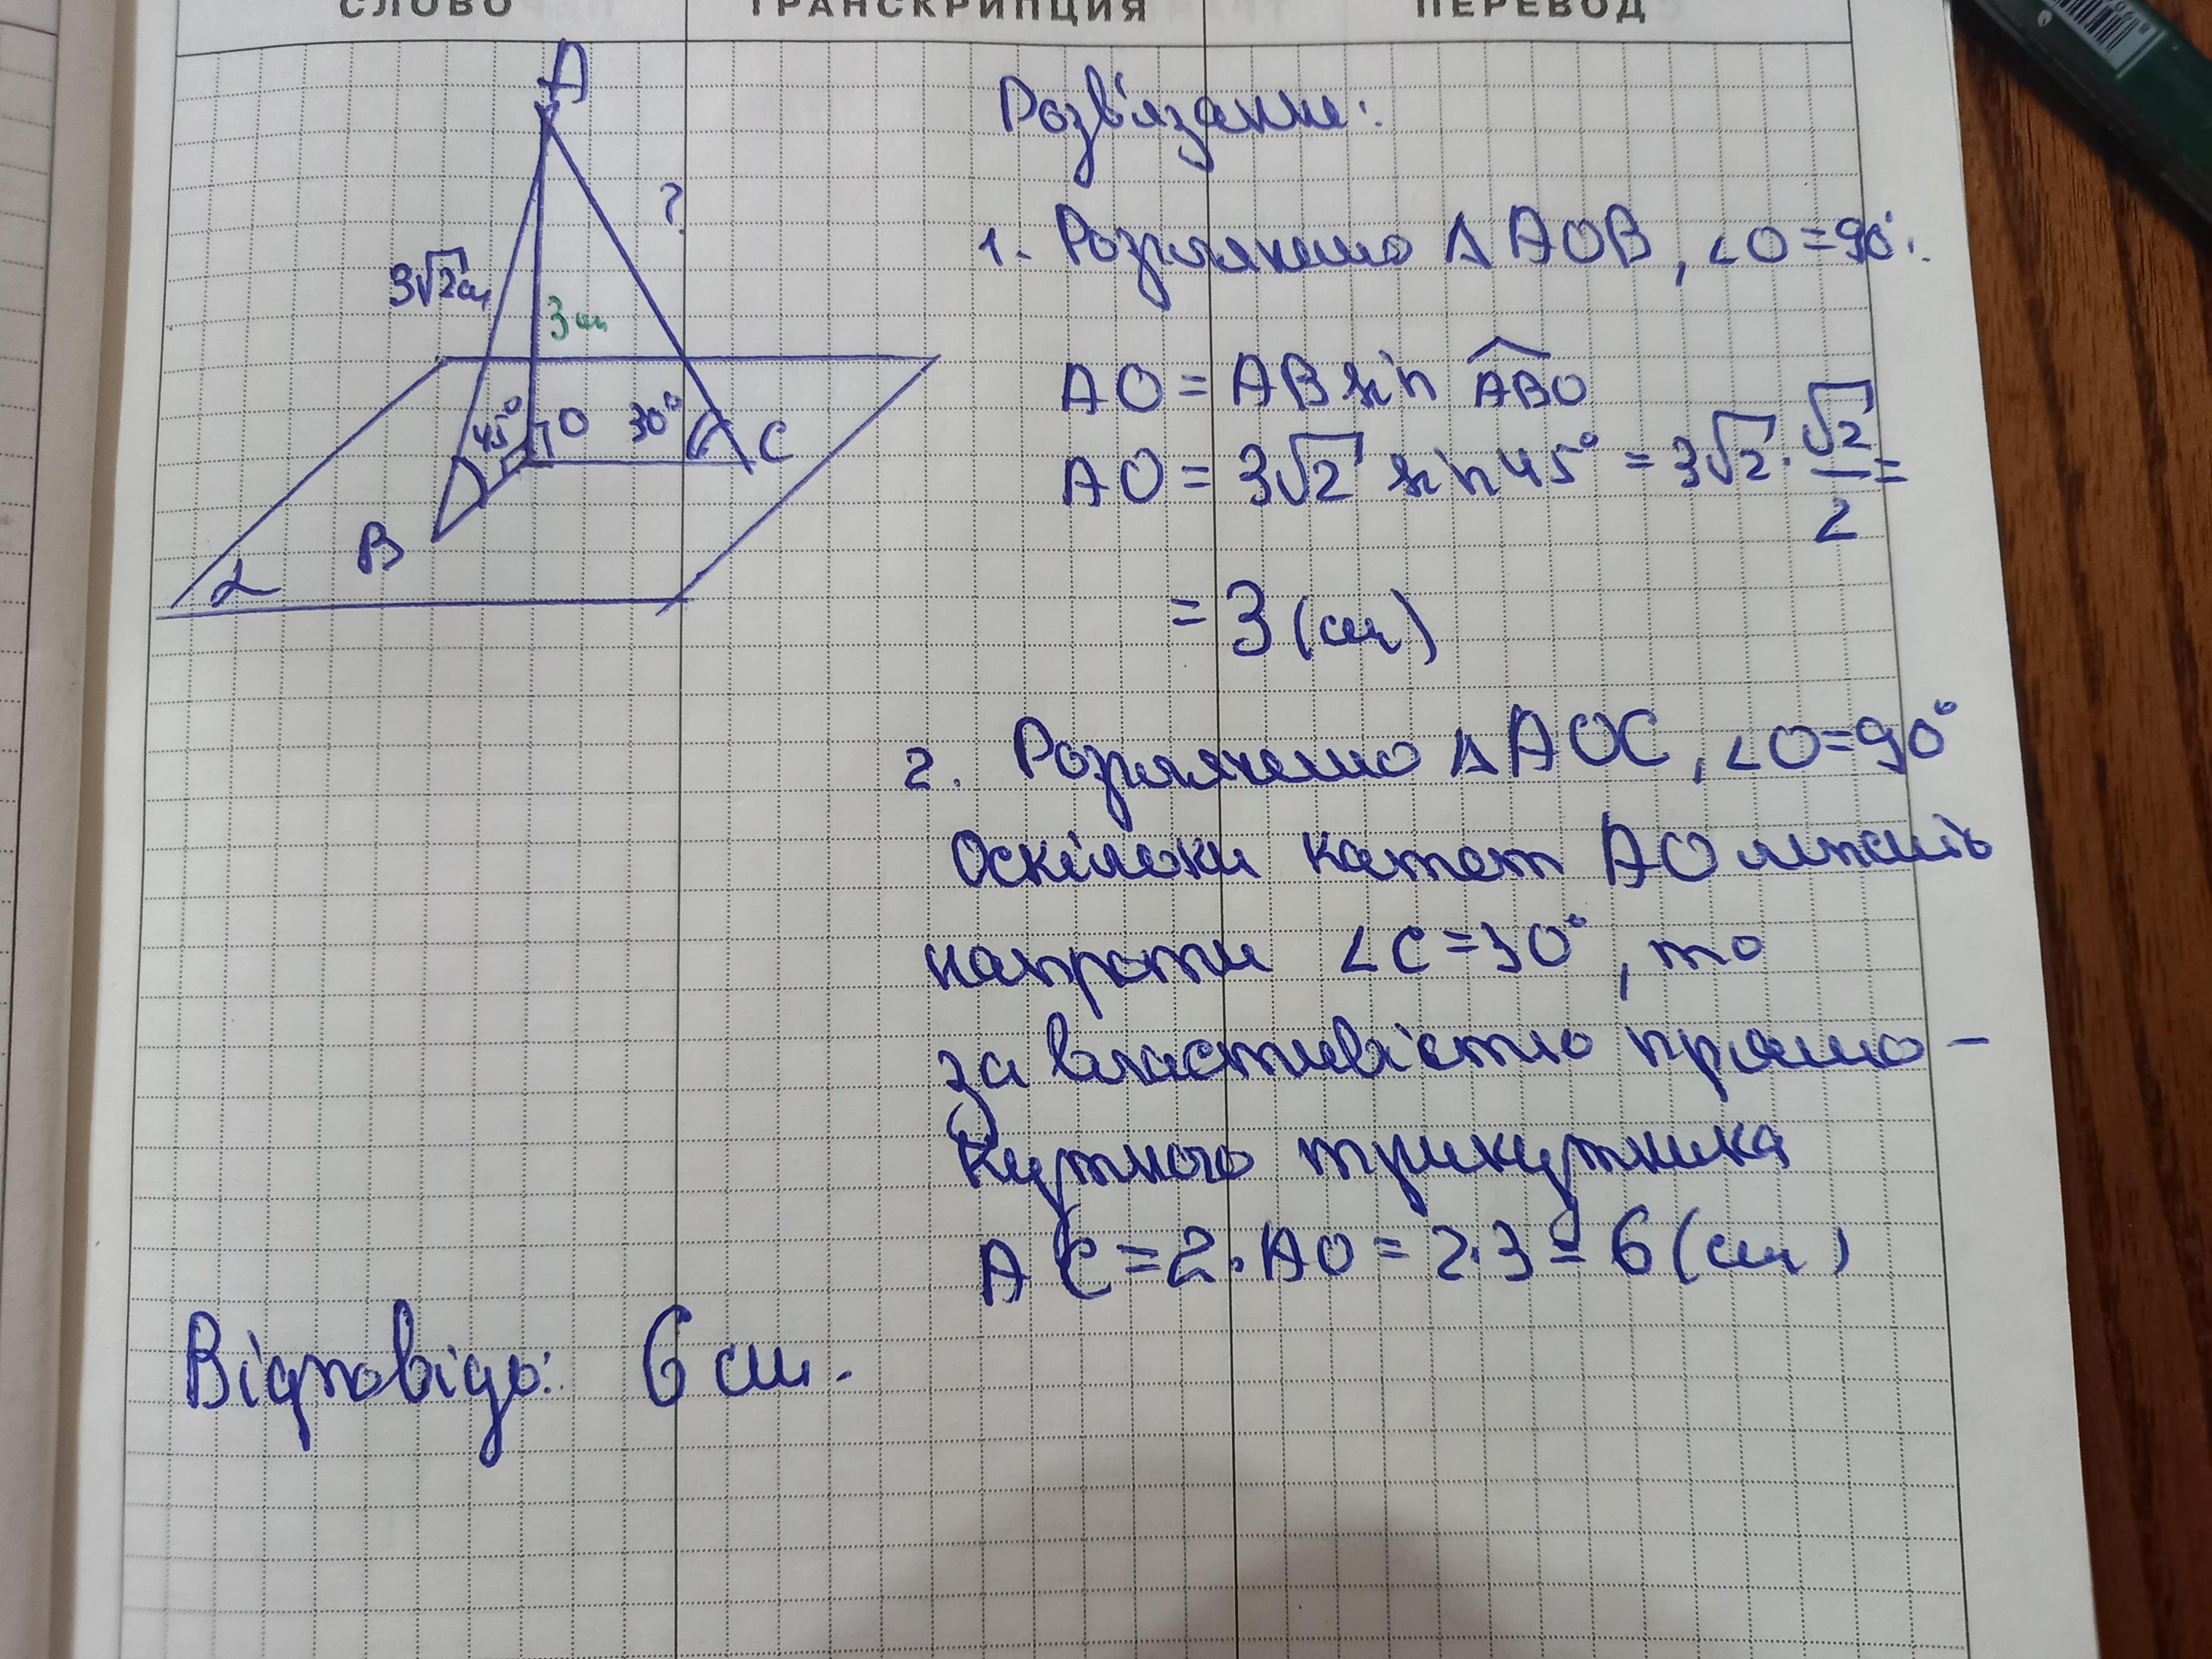 СЛОВО ТРАНСКРИПЦИЯ ПЕРЕВОД
A
?
3√2 см
3 см
45° O 30° C
B
α
Розв'язання:
1. Розглянемо Δ AOB, ∠O=90°.
AO = AB sin ABO
AO = 3√2 sin 45° = 3√2 · √2/2 =
= 3 (см)
2. Розглянемо Δ AOC, ∠O=90°
Оскільки катет AO лежить
напроти ∠C=30°, то
за властивістю прямо-
кутного трикутника
AC = 2·AO = 2·3 = 6 (см)
Відповідь: 6 см.